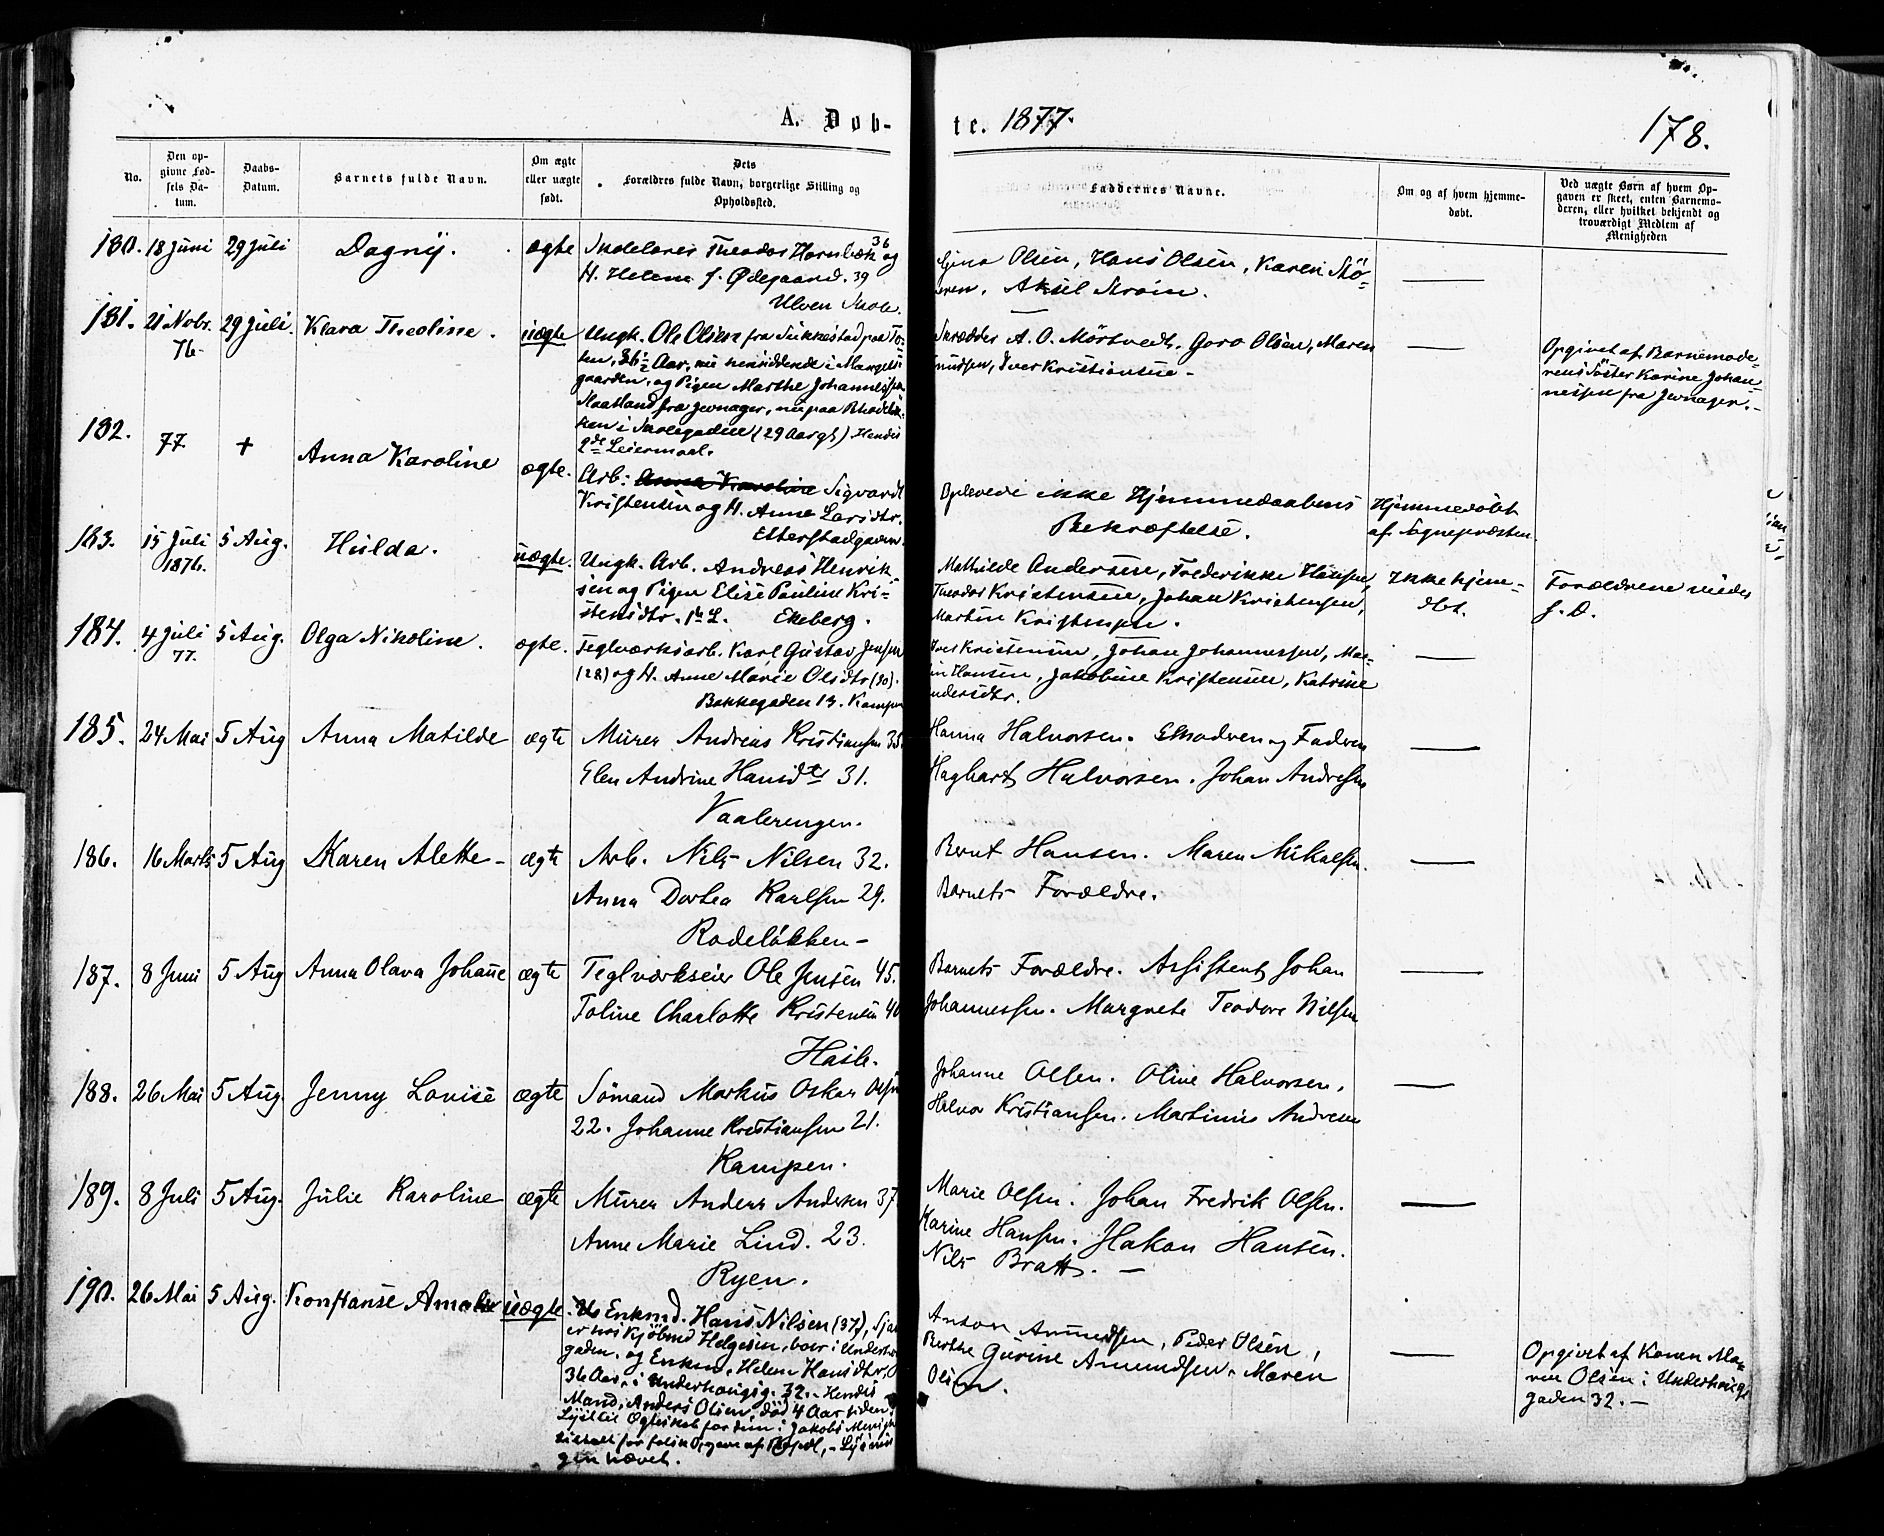 A. Døb-
te. 1877.
178.
No.
Den op-
givne Fød-
sels Da-
tum.
Daabs-
Datum.
Barnets fulde Navn.
Om ægte
eller uægte
født.
Dets
Forældres fulde Navn, borgerlige Stilling og
Opholdssted.
Faddernes Navne.
Om og af hvem hjemme-
døbt.
Ved uægte Børn af hvem Op-
gaven er skeet, enten Barnemo-
deren, eller hvilket bekjendt og
troværdigt Medlem af
Menigheden
180. 18 Juni 29 Juli Dagny. ægte Theodor Hornbæk 36 og
H. Helene f. Ødegaard. 39
Ulven
Olsen, Hans Olsen, Karen Stö-
Aksel Strøm.
181. 21 Novbr. 29 Juli. Klara Theoline. uægte
76.
Ungk. Ole Olsen fra paa To-
ten, 26½ Aar, nu i Mangels-
gaarden, og Pigen Marthe Johannessen
fra Jevnager, nu paa Rhodeløk-
ken i Skolegaden (29 Aar gl) Hendes
2de Leiermaal.
Skrædder A. O. Mörtvedt. Goro Olsen, Maren
Iver Kristiansen -
Opgivet af Barnemode-
rens Söster Karine Johan-
nessen fra Jevnager. -
182. 77 + Anna Karoline ægte.
Arb: Sigvardt
Kristensen og H. Anne Larsdtr.
Etterstadgaden.
Oplevede ikke Hjemmedaabens
Bekræftelse.
Hjemmedöbt
af Sognepræsten.
183. 15 Juli 5 Aug. Hulda. uægte.
1876.
Ungk. Arb. Andreas Henrik-
sen og Pigen Elise Pauline Kri-
stensdtr. 1ste L. Ekeberg.
Mathilde Andersen, Frederikke Hansen,
Theodor Kristensen, Johan Kristensen,
Martin Kristensen.
Ikke hjem-
dbt.
Forældrene
f. D.
184. 4 Juli 5 Aug. Olga Nikoline. ægte.
77.
Teglværksarb. Karl Gustav Jensen
(28) og H. Anne Marie Olsdtr (30).
Bakkegaden 13. Kampen
Iver Kristensen, Johan Johannessen, Mar-
Hansen, Jakobine Kristensen, Katrine
185. 24 Mai 5 Aug Anna Matilde ægte
Murer Andreas Kristiansen 35
Elen Andrine Hansdtr 31.
Vaalerengen.
Hanna Halvorsen. og Fadren
Hagbart Halvorsen. Johan Andresen
186. 16 Marts 5 Aug Karen Alette - ægte
Arb. Nils Nilsen 32.
Anna Dortea Karlsen 29.
Rodeløkken -
Bernt Hansen. Maren Mikalsen.
Barnets Forældre.
187. 8 Juni 5 Aug Anna Olava Johanne ægte
Teglværkseier Ole Jensen 45.
Toline Charlotte Kristensen 40
Hasle.
Barnets Forældre. Assistent Johan
Johannessen. Margrete Teodore Nilsen
188. 26 Mai 5 Aug. Jenny Lovise ægte
Sömand Markus Oskar Olsen
22. Johanne Kristiansen 21.
Kampen.
Johanne Olsen. Oline Halvorsen.
Halvor Kristiansen. Martinius Andresen
189. 8 Juli 5 Aug. Julie Karoline ægte
Murer Anders Andersen 37.
Anne Marie Lind. 23.
Ryen.
Marie Olsen. Johan Fredrik Olsen.
Karine Hansen. Hakon Hansen.
Nils Bratt. -
190. 26 Mai 5 Aug. Konstanse Amalie uægte
Enkmd. Hans Nilsen (37),
hos Kjöbmd Helgesen, boer i
gaden, og Enken Helene Hansdtr,
36 Aar, i 32. - Hendes
Mand, Anders Olsen, död 4 Aar siden.
Lyst til Ægteskab for dem i Jakobs
gen hævet.
Anton Amundsen, Peder Olsen,
Berthe Gurine Amundsen, Maren
Olsen.
Opgivet af Karen Ma-
ren Olsen i
gaden 32. -